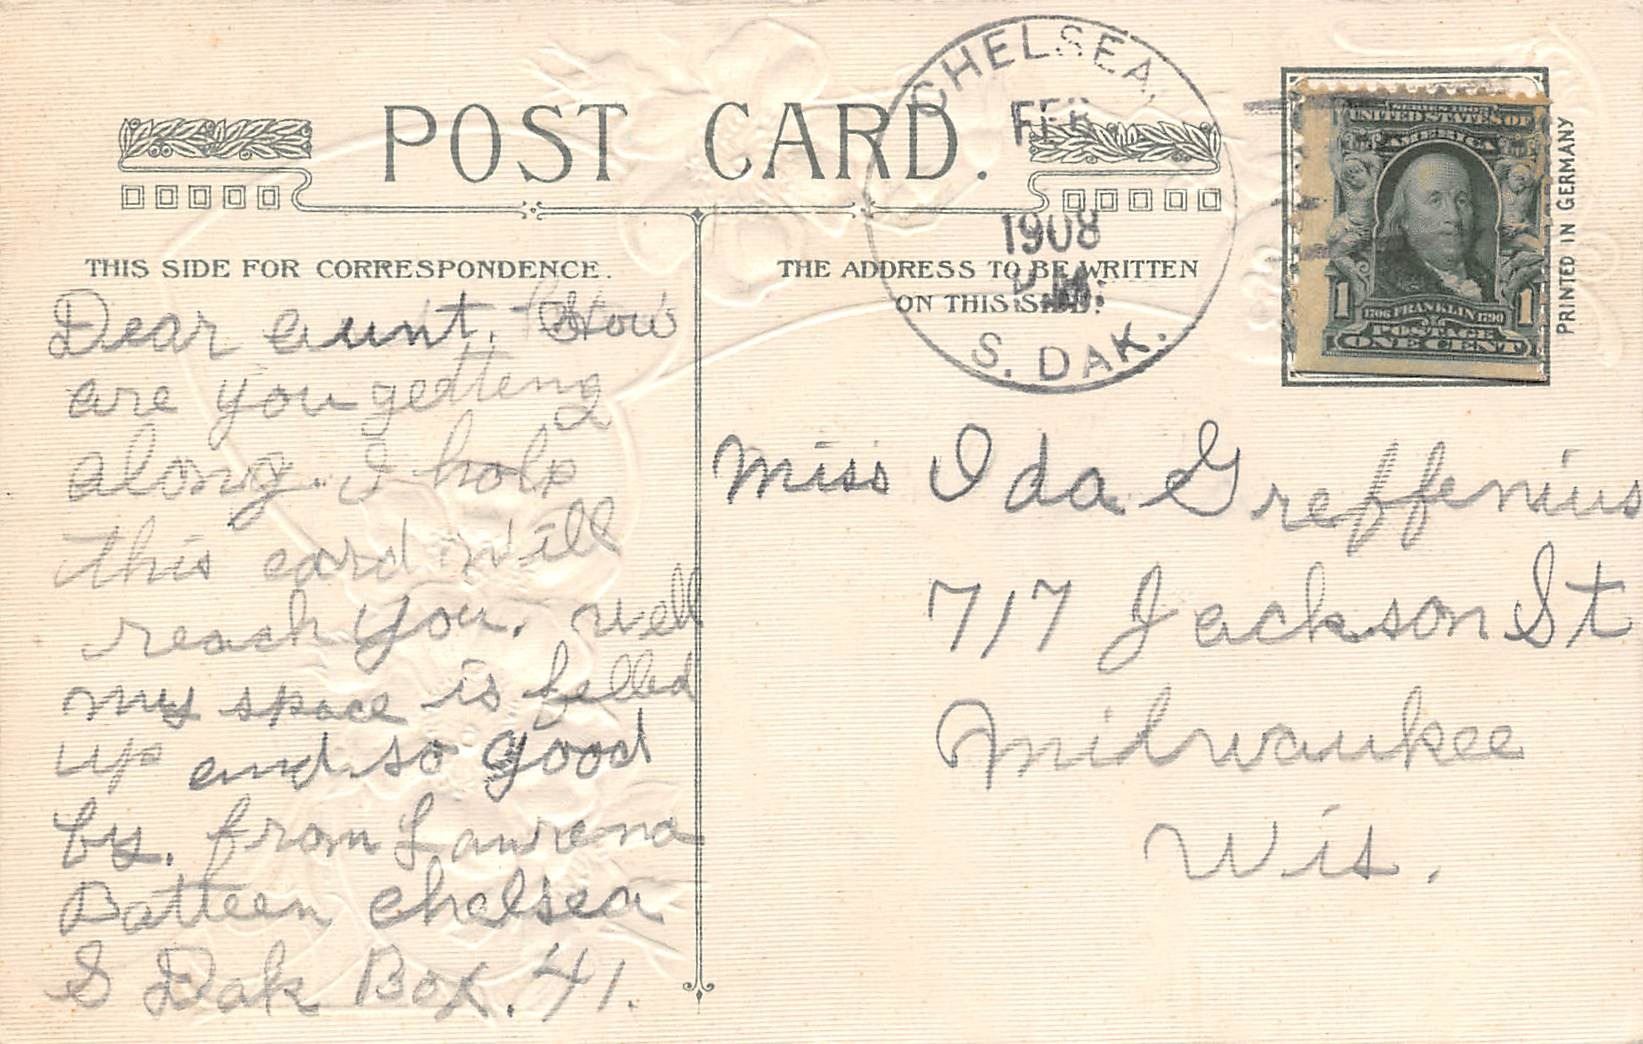 POST CARD.
THIS SIDE FOR CORRESPONDENCE.
THE ADDRESS TO BE WRITTEN
ON THIS SIDE.
CHELSEA,
FEB
1908
S. DAK.
UNITED STATES OF
AMERICA
1 1
1706 FRANKLIN 1790
POSTAGE
ONE CENT
PRINTED IN GERMANY
Dear aunt. How
are you getteng
along. I hope
this card will
reach you. well
my space is felled
up and so good
by. from Laurena
Batteen Chelsea
S Dak Box. 41.
Miss Ida Greffenius
717 Jackson St
Milwaukee
Wis.